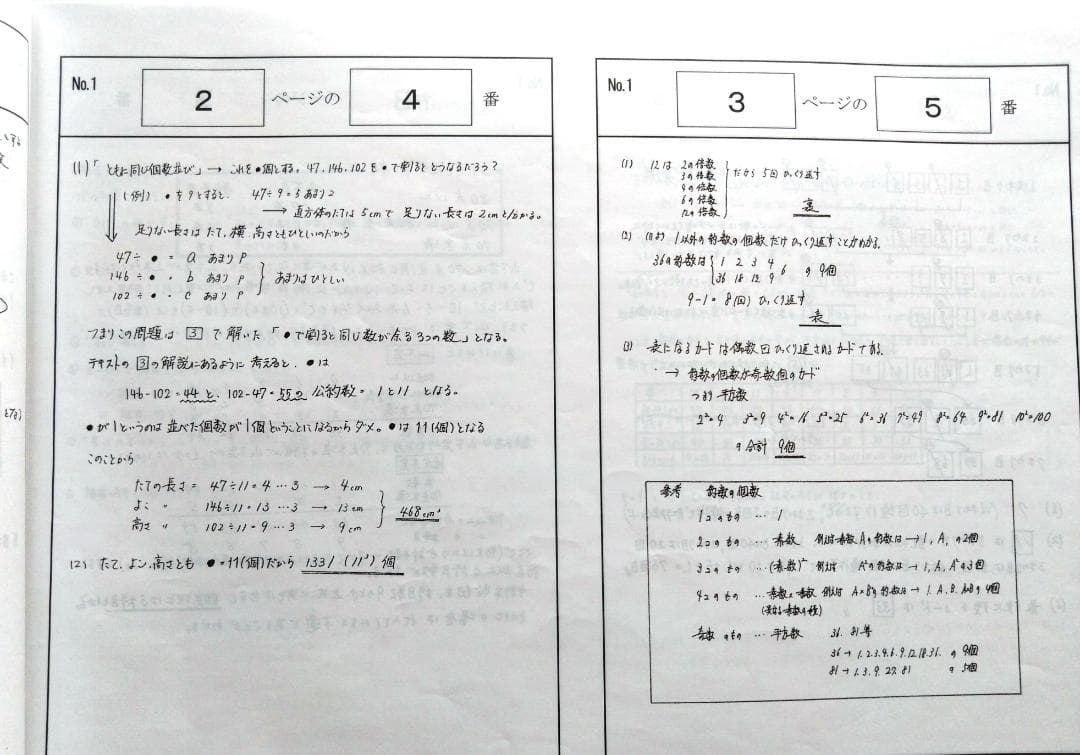 No.1
2 ページの 4 番
(1)「ともに同じ個数並び」→ これを●個とする。47, 146, 102 を ● で割るとどうなるだろう?
(例) ●を9とすると、 47÷9=5あまり2
→ 直方体のたては5cmで 足りない長さは2cmと分かる。
足りない長さは たて、横、高さともひとしいのだから
47÷● = a あまり P
146÷● = b あまり P
102÷● = c あまり P
あまりはひとしい
つまりこの問題は 3 で解いた「●で割ると同じ数が余る3つの数」となる。
テキストの 3 の解説にあるように 考えると、●は
146-102=44 と、102-47=55の 公約数=1と11 となる。
●が1というのは 並べた個数が1個ということになるからダメ。●は11(個)となる
このことから
たての長さ = 47÷11=4…3 → 4cm
よこ 〃 146÷11=13…3 → 13cm
高さ 〃 102÷11=9…3 → 9cm
468cm³
(2) たて、よこ、高さとも ●=11(個)だから 1331(11³)個
No.1
3 ページの 5 番
(1) 12は 2の倍数
3の倍数
4の倍数
6の倍数
12の倍数
だから 5回 ひっくり返す
裏
(2) (1)より 1以外の約数の個数だけ ひっくり返すことがわかる。
36の約数は 1 2 3 4 6 の 9個
36 18 12 9
9-1=8(回) ひっくり返す
表
(3) 表になるカードは偶数回ひっくり返されるカードである。
→ 約数の個数が奇数個のカード
つまり 平方数
2²=4 3²=9 4²=16 5²=25 6²=36 7²=49 8²=64 9²=81 10²=100
の合計 9個
参考 約数の個数
1コのもの … 1
2コのもの … 素数 例えば素数Aの約数は→1, A, の2個
3コのもの …(素数)² 例えば A²の約数は→1, A, A²の3個
4コのもの … 素数×素数 例えば A×Bの約数は→1, A, B, A×Bの4個
(異なる素数の積)
奇数コのもの … 平方数 36, 81等
36→1.2.3.4.6.9.12.18.36. の 9個
81→1.3.9.27.81 の 5個